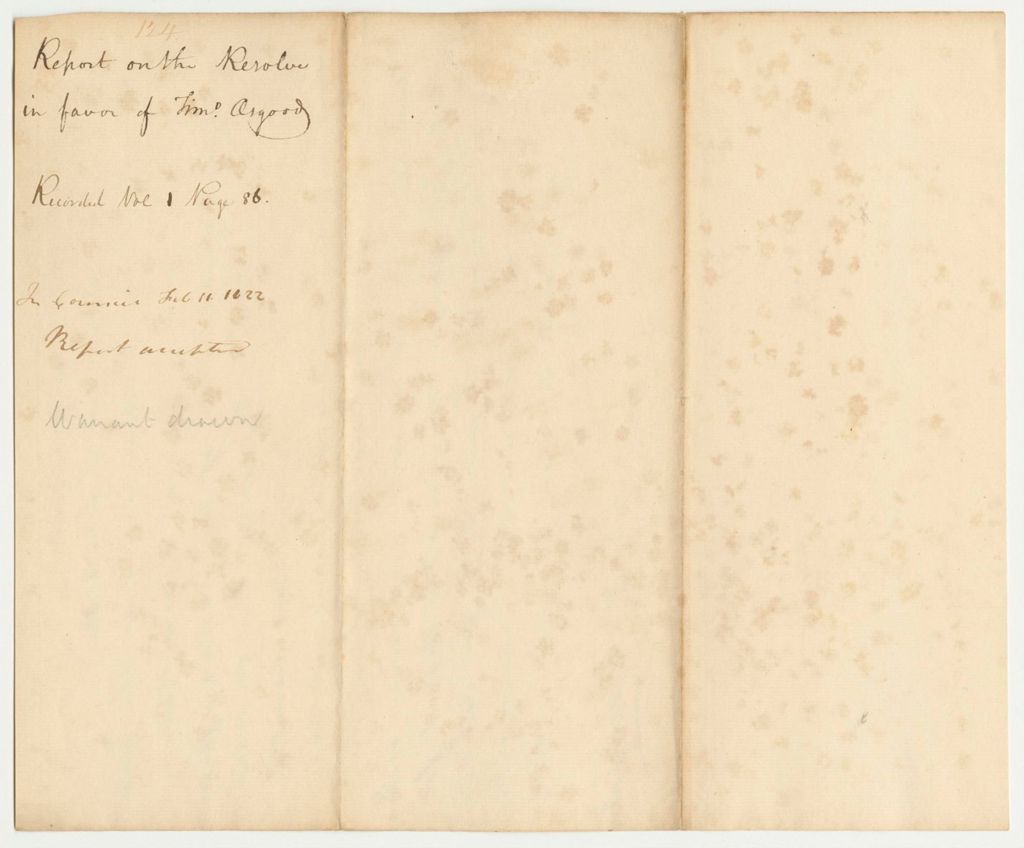 124
Report on the Resolve
in favor of Timo. Osgood
Recorded Vol 1 Page 86.
In Council Feb 11. 1822
Report accepted
Warrant drawn